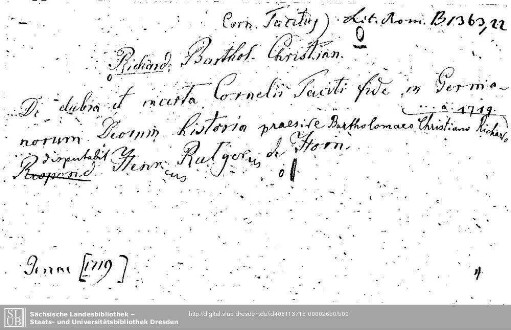 Corn. Tacitus) Lit. Rom. B 1363,22
Richard. Barthol. Christian.
De dubia et incerta Cornelii Taciti fide in Germa-
norum Deorum historia praeside Bartholomaeo Christiano Richardo
a. 1719.
disputabit
Respond. Henricus Rutgerus de Horn.
Jenae [1719]
4
SLUB
Sächsische Landesbibliothek –
Staats- und Universitätsbibliothek Dresden